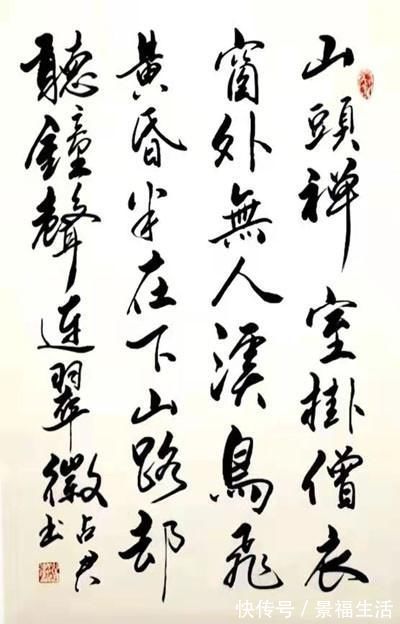 山頭禅室掛僧衣
窗外無人溪鳥飛
黄昏半在下山路却
聽鐘聲連翠微
占君书
快传号 / 景福生活